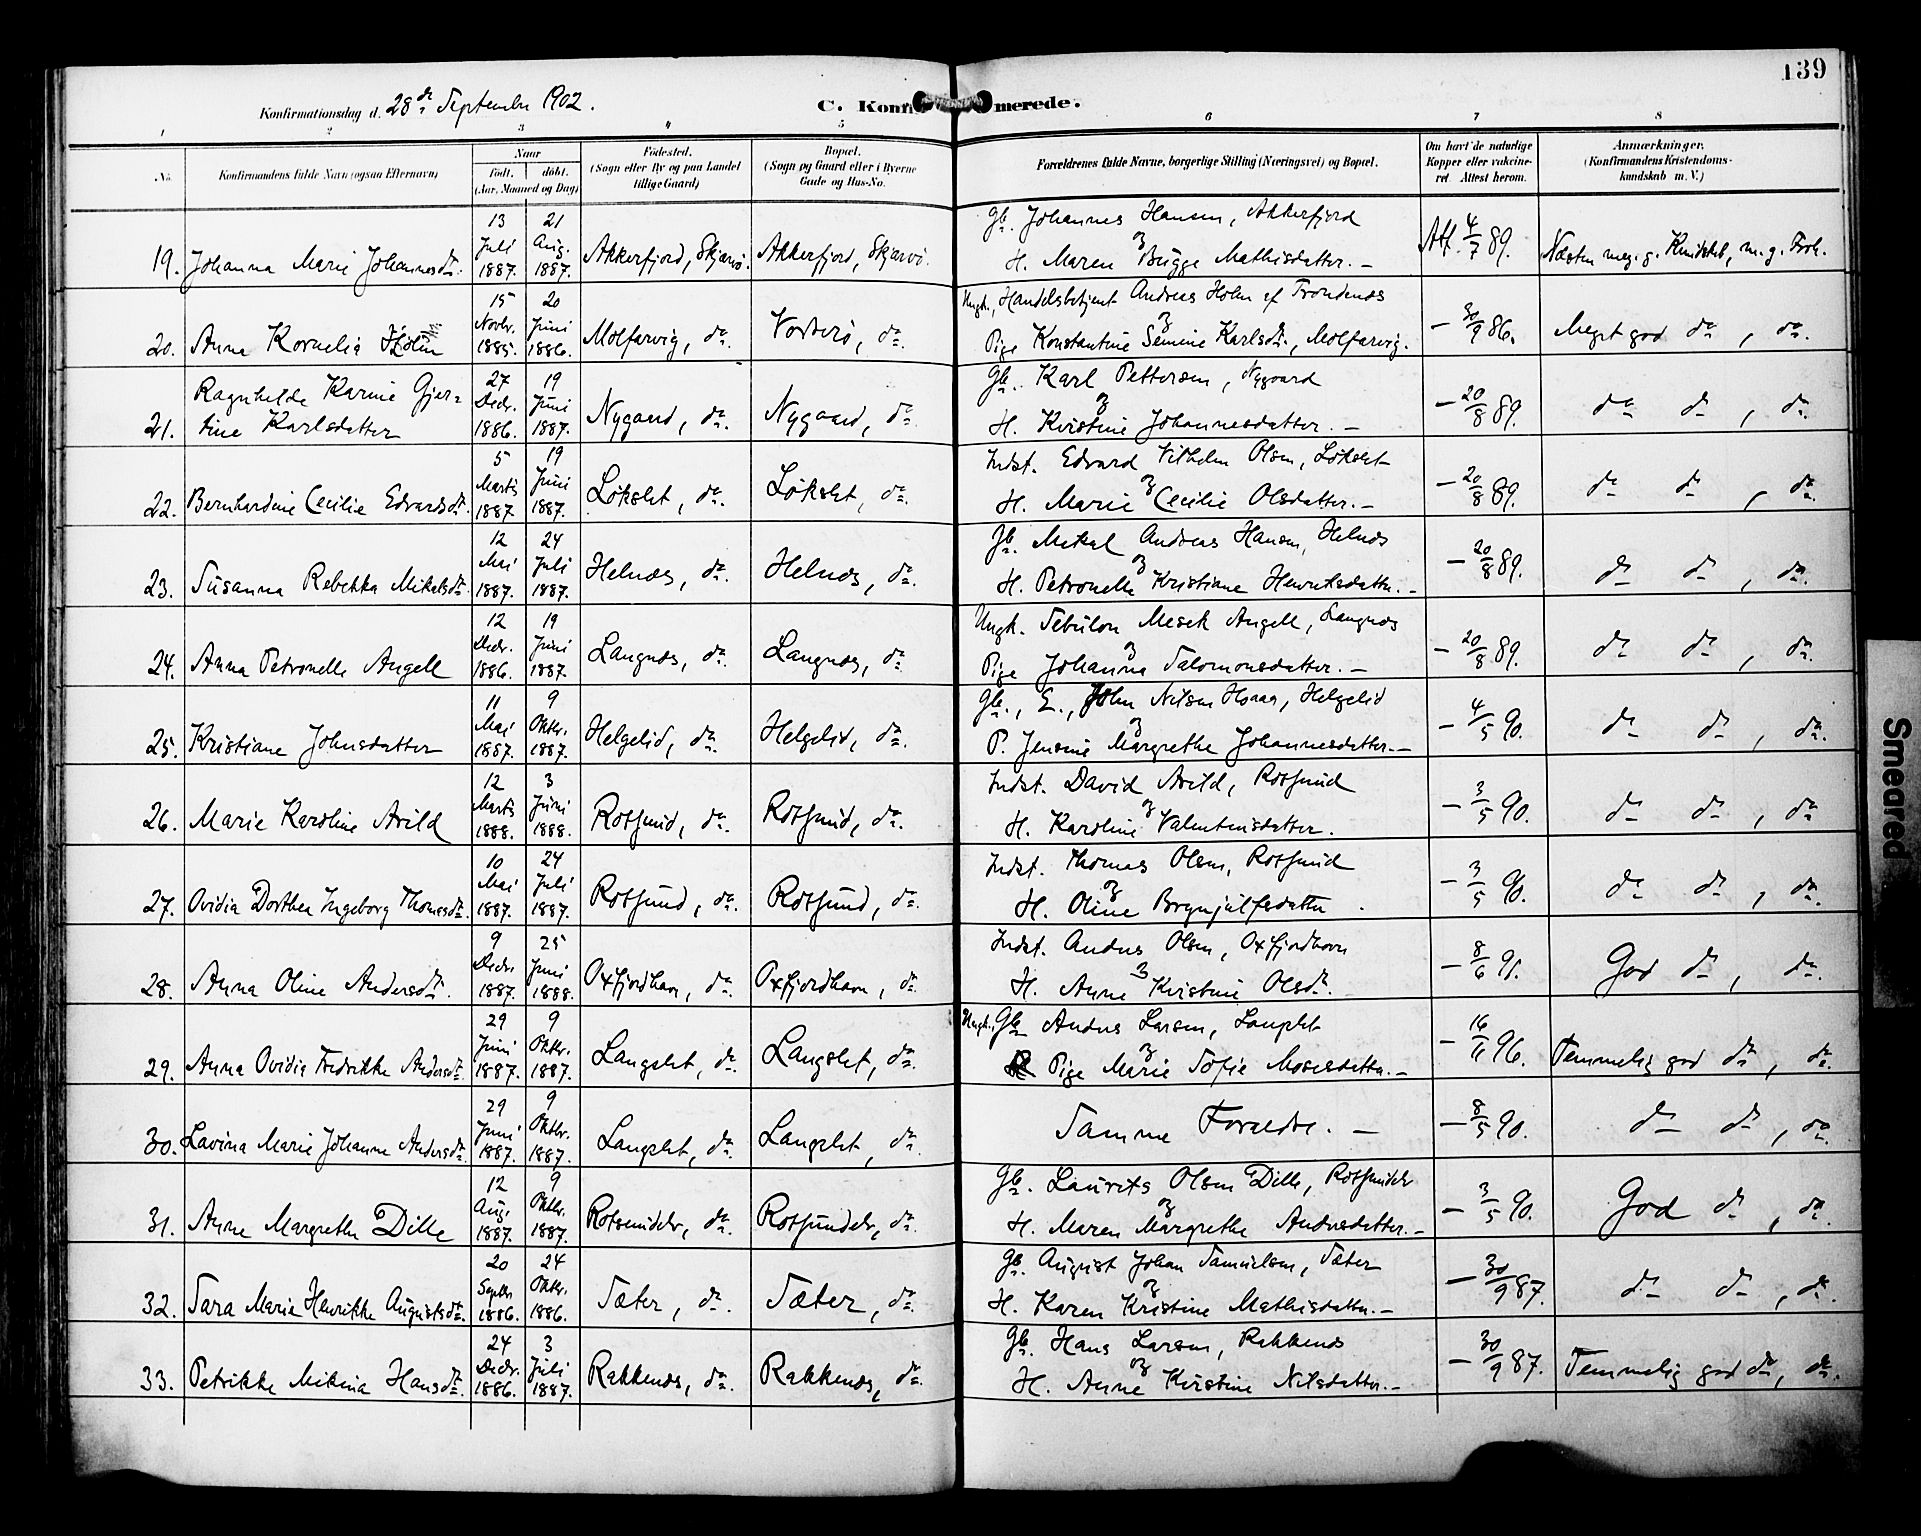 139
Konfirmationsdag d. 28de September 1902.
C. Konfirmerede.
1 2 3 4 5 6 7 8
No. Konfirmandens fulde Navn (ogsaa Efternavn)
Naar født. døbt. (Aar, Maaned og Dag)
Fødested. (Sogn eller By og paa Landet tillige Gaard)
Bopæl. (Sogn og Gaard eller i Byerne Gade og Hus-No.
Forældrenes fulde Navne, borgerlige Stilling (Næringsvei) og Bopæl.
Om havt de naturlige Kopper eller vakcineret. Attest herom.
Anmærkninger. (Konfirmandens Kristendomskundskab m. V.)
19. Johanna Marie Johannesdtr. 13 Juli 1887. 21 Aug. 1887. Akkerfjord, Skjærvø. Akkerfjord, Skjærvø.
Gb. Johannes Hansen, Akkerfjord
og
H. Maren Brigge Mathisdatter. — Att. 4/7 89. Næsten meg. g. Kundskab, m. g. Forh.
20. Anna Kornelia Holm 15 Novbr. 1885. 20 Juni 1886. Molfarvig, do. Vorterø, do.
Ungk., Handelsbetjent Andreas Holm af Trondenæs
og
Pige Konstantine Semine Karlsdtr., Molfarvig. — 30/9 86. Meget god do, do.
21. Ragnhilde Karine Gjer-
tine Karlsdatter 27 Decbr. 1886. 19 Juni 1887. Nygaard, do. Nygaard, do.
Gb. Karl Pettersen, Nygaard
og
H. Kristine Johannesdatter. — — 20/8 89. do do, do.
22. Bernhardine Cecilie Edvardsdtr. 5 Marts 1887. 19 Juni 1887. Løkslet, do. Løkslet, do.
Indst. Edvard Vilhelm Olsen, Løkslet
og
H. Marie Cecilie Olsdatter. — — 20/8 89. do do, do.
23. Susanna Rebekka Mikalsdtr. 12 Mai 1887. 24 Juli 1887. Helnæs, do. Helnæs, do.
Gb. Mikal Andreas Hansen, Helnæs
og
H. Petronelle Kristiane Henriksdatter. — — 20/8 89. do do, do.
24. Anna Petronelle Angell 12 Decbr. 1886. 19 Juni 1887. Langnæs, do. Langnæs, do.
Ungk. Sebulon Mesek Angell, Langnæs
og
Pige Johanna Salomonsdatter. — — 20/8 89. do do, do.
25. Kristiane Johnsdatter 11 Mai 1887. 9 Oktbr. 1887. Helgelid, do. Helgelid, do.
Gb., E., John Nilsen Haaar, Helgelid
og
P. Jensine Margrethe Johannesdatter. — — 4/5 90. do do, do.
26. Marie Karoline Arild 12 Marts 1888. 3 Juni 1888. Rotsund, do. Rotsund, do.
Indst. David Arild, Rotsund
og
H. Karoline Valentinsdatter. — 3/5 90. do do, do
27. Ovidia Dorthea Ingeborg Thomasdtr. 10 Mai 1887. 24 Juli 1887. Rotsund, do. Rotsund, do.
Indst. Thomas Olsen, Rotsund
og
H. Oline Brynjulfsdatter. — 3/5 90. do do, do.
28. Anna Oline Andersdtr. 9 Decbr. 1887. 25 Juni 1888. Oxfjordhavn, do. Oxfjordhavn, do.
Indst. Anders Olsen, Oxfjordhavn
og
H. Anne Kristine Olsdtr. — 8/6 91. God do, do.
29. Anna Ovidia Fredrikke Andersdtr. 29 Juni 1887. 9 Oktbr. 1887. Langslet, do. Langslet, do.
Ungk., Gb. Anders Larsen, Langslet
og
Pige Marie Sofie Mosesdatter. — — 16/6 96. Temmelig god do, do.
30. Lavina Marie Johanne Andersdtr. 29 Juni 1887. 9 Oktbr. 1887. Langslet, do. Langslet, do.
Samme Forældre. — — 8/5 90. do do, do.
31. Anne Margrethe Dille 12 Aug. 1887. 9 Oktbr. 1887. Rotsundelv, do. Rotsundelv, do.
Gb. Laurits Olsen Dille, Rotsundelv
og
H. Maren Margrethe Andersdatter. — — 3/5 90. God do, do.
32. Sara Marie Henrikke Augustsdtr. 20 Septbr 1886. 24 Oktbr. 1886. Sæter, do. Sæter, do.
Gb. August Johan Samuelsen, Sæter
og
H. Karen Kristine Mathisdatter. — — 30/9 87. do do, do.
33. Petrikke Mikina Hansdtr. 24 Decbr. 1886. 3 Juli 1887. Rakkenæs, do. Rakkenæs, do.
Gb. Hans Larsen, Rakkenæs
og
H. Anne Kirstine Nilsdatter. — — 30/9 87. Temmelig god do, do.
Smeared